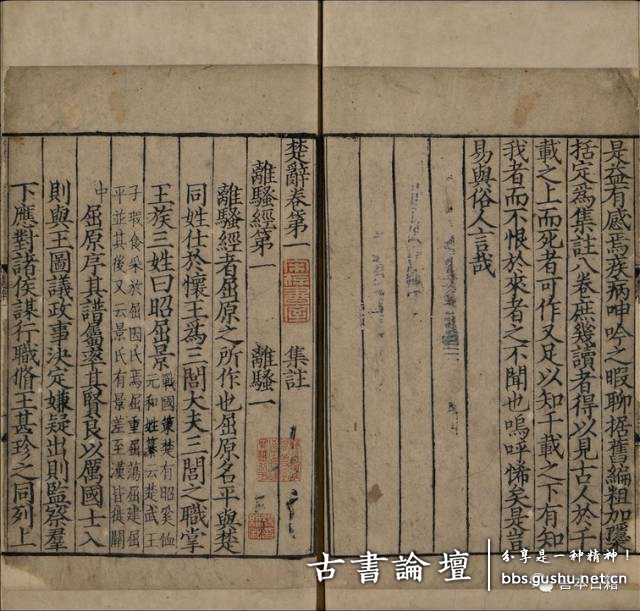 是益有感焉疾病呻吟之暇聊据舊編粗加隱
括定為集註八卷庶幾讀者得以見古人於千
載之上而死者可作又足以知千載之下有知
我者而不恨於來者之不聞也嗚呼悕矣是豈
易與俗人言哉
楚辭卷第一 集註
離騷經第一 離騷一
離騷經者屈原之所作也屈原名平與楚
同姓仕於懷王為三閭大夫三閭之職掌
王族三姓曰昭屈景
戰國策楚有昭奚恤
元和姓纂云楚武王
子瑕食采於屈因氏焉屈重屈蕩屈建屈
平並其後又云景氏有景差至漢皆徙關
中
屈原序其譜屬率其賢良以厲國士入
則與王圖議政事決定嫌疑出則監察羣
下應對諸侯謀行職脩王甚珍之同列上
古書論壇
分享是一种精神!
bbs.gushu.net.cn